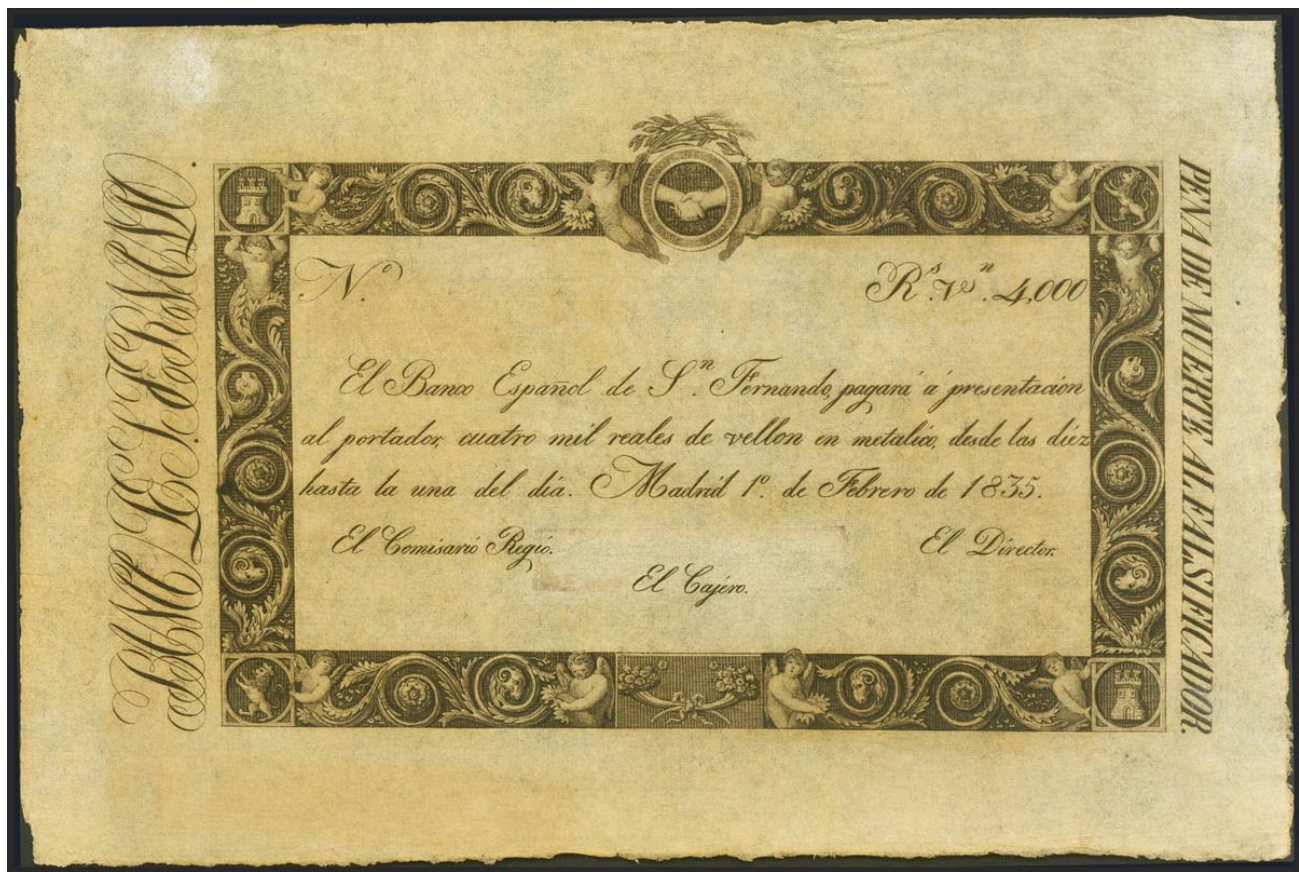 N.º
R.s V.n 4,000
El Banco Español de S.n Fernando, pagará á presentacion
al portador, cuatro mil reales de vellon en metalico, desde las diéz
hasta la una del dia. Madrid 1º. de Febrero de 1835.
El Comisario Regio.
El Director.
El Cajero.
PENA DE MUERTE AL FALSIFICADOR.